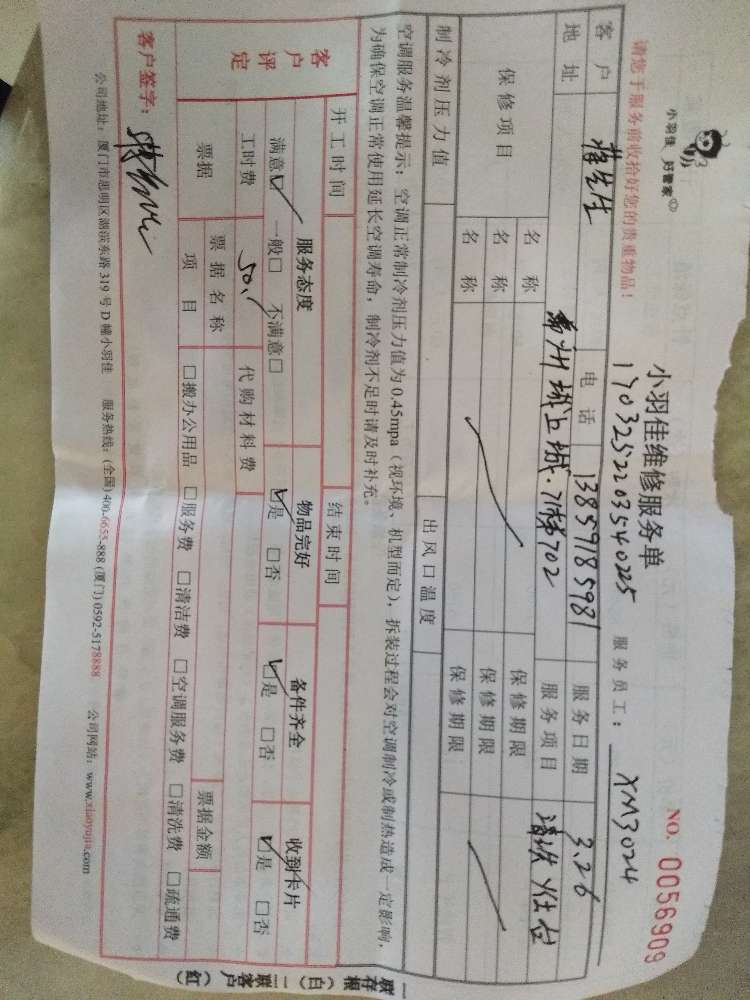 小羽佳 好管家
小羽佳维修服务单
NO. 0056909
1703252203540225
服务员工： XM3024
请您于服务前收拾好您的贵重物品！
客户 电话 13859185981 服务日期 3.26
地址 城上城·7梯702 服务项目 清洗
保修项目 名称 保修期限
名称 保修期限
名称 保修期限
制冷剂压力值 出风口温度
空调服务温馨提示：空调正常制冷剂压力值为0.45mpa（视环境、机型而定），拆装过程会对空调制冷或制热造成一定影响，
为确保空调正常使用延长空调寿命，制冷剂不足时请及时补充。
开工时间 结束时间
客户评定 服务态度 物品完好 备件齐全 收到卡片
满意☑ 一般□ 不满意□ ☑是 □否 ☑是 □否 ☑是 □否
工时费 50. 代购材料费
票据 票据名称 票据金额
项目 □搬办公用品 □服务费 □清洁费 □空调服务费 □清洗费 □疏通费
客户签字：
公司地址：厦门市思明区湖滨东路319号D幢小羽佳 服务热线：(全国)400-6655-888 (厦门) 0592-5178888 公司网站：www.xiaoyujia.com
一联存根（白）二联客户（红）